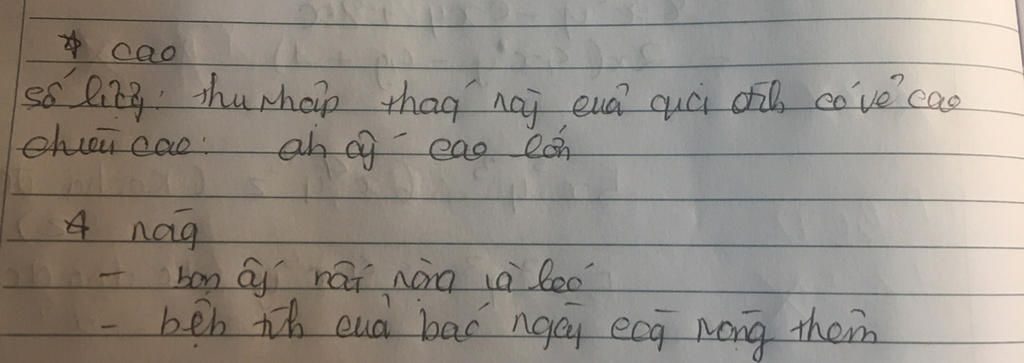 * cao
số lượng: thu nhập tháng này của gia đình có vẻ cao
chiều cao: anh ấy cao lớn
* nặng
- bạn ấy rất nặng và béo
- bệnh tình của bác ngày càng nặng thêm